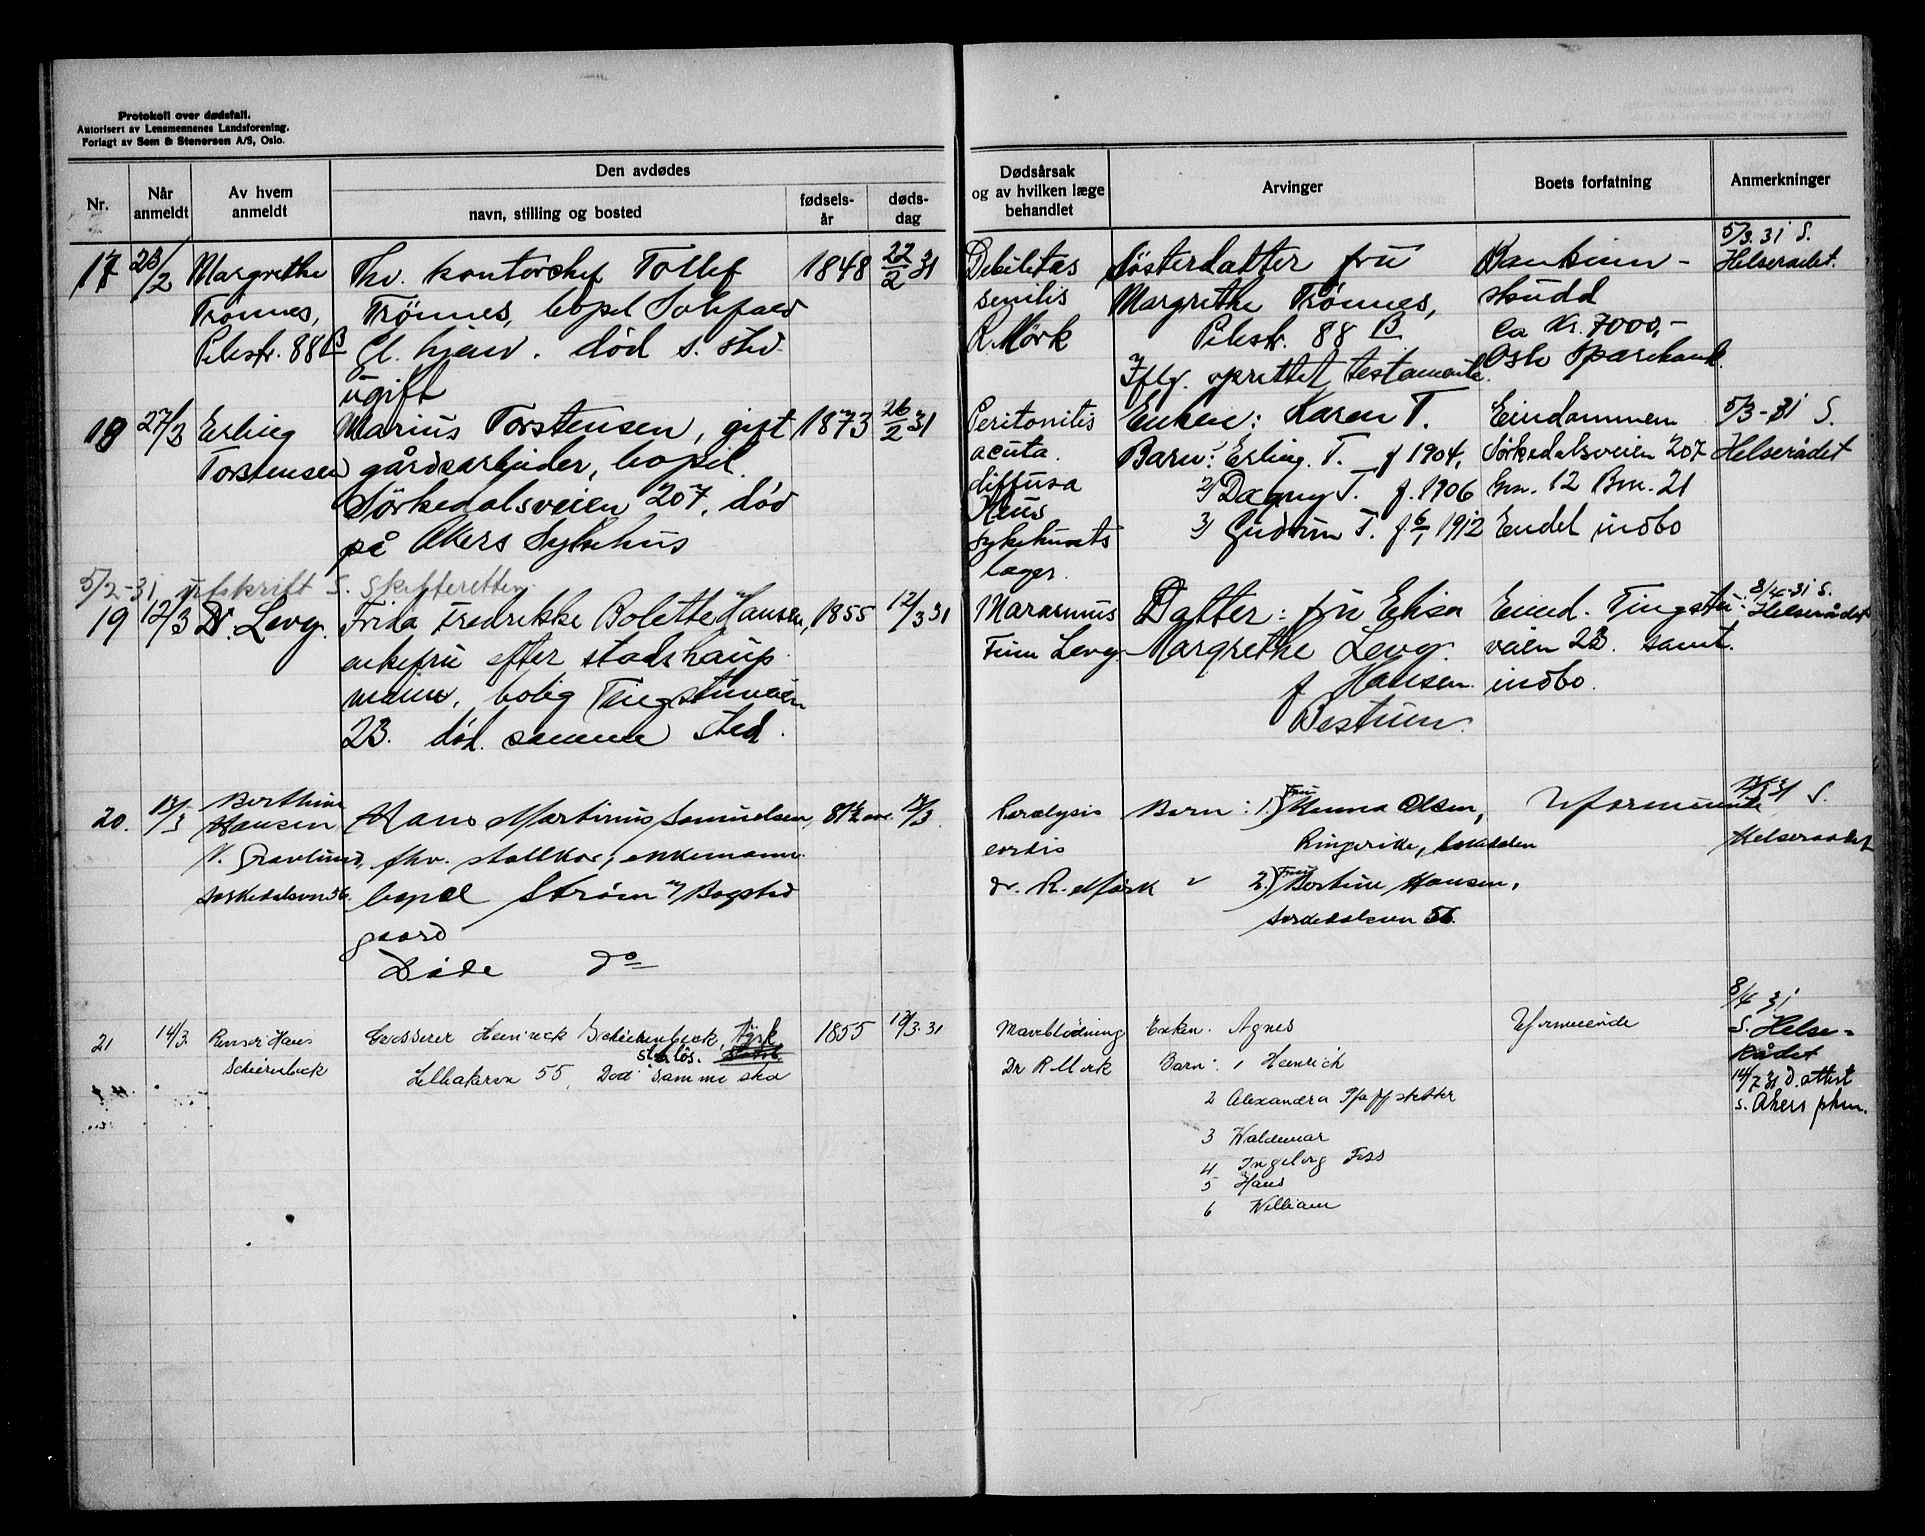 Protokoll over dødsfall.
Autorisert av Lensmennenes Landsforening.
Forlagt av Sem & Stenersen A/S, Oslo.
Nr.
Når anmeldt
Av hvem anmeldt
Den avdødes
navn, stilling og bosted
fødsels-år
døds-dag
Dødsårsak og av hvilken læge behandlet
Arvinger
Boets forfatning
Anmerkninger
17
23/2
Margrethe
Trønnes,
Pilestr. 88 B
Fhv. kontorchef Tollef
Trönnes, bopel
Gl. hjem. död s. sted
ugift
1848
22/2 31
Debilitas
senilis
R. Mörk
Søsterdatter fru
Margrethe Trönnes,
Pilestr. 88 B
Iflg. oprettet testamente.
Bankinn-
skudd
ca kr. 7000,-
Oslo Sparebank.
5/3. 31 S.
Helserådet.
18
27/2
Erling
Torstensen
Marius Torstensen, gift
gårdsarbeider, bopel.
Sörkedalsveien 207, død
på Akers Sykehus
1873
26/2 31
Peritonitis
acuta.
diffusa
sykehusets
læger.
Enken: Karen T.
Barn: 1/ Erling T. f 1904,
2/ Dagny T. f. 1906
3/ Gudrun T. f 6/1 1912
Eiendommen
Sörkedalsveien 207
Gnr. 12 Bnr. 21
Endel indbo
5/3-31 S.
Helserådet
5/2-31 utskrift S. Skifteretten.
19
12/3
Dr. Levy.
Frida Fredrikke Bolette Hansen,
enkefru efter stadshaup-
mann, bolig Tingstuveien
23. död. samme sted.
1855
12/3 31
Marasmus
Finn Levy.
Datter: fru Elisa
Margrethe Levy.
f Hansen.
Bestum.
Eiend. Tingstu-
veien 23. samt.
indbo.
8/4-31 S.
Helserådet
20.
13/3
Berthine
Hansen
V. Gravlund,
Sørkedalsvn 56.
Hans Martinus Samuelsen,
fhv. stallkar, enkemann.
bopel Strøm u/ Bogstad
gaard
Døde do
81 1/2 aar.
12/3.
Paralysis
cordis
dr. R. Mørk
Barn: 1.) Fru Hanna Olsen,
Ringerike,
2.) Fru Bertine Hansen,
Sørkedalsvn 56.
Uformuende
S.
Helseraadet
21
14/3.
Hans
Scheerenbeck
Grosserer Heinrich Scheerenbeck, tysk
statslös.
Lilleakervn 55, Död samme sted
1855
12/3. 31
Maveblödning
Dr R Mork
Enken. Agnes
Barn: 1 Heinrich
2 Alexandra Pfaffstetter
3 Waldemar
4 Ingeborg Foss
5 Hans
6 William
Uformuende
8/4 31
S. Helse-
rådet
14/7 31 D. attest
s. Akers